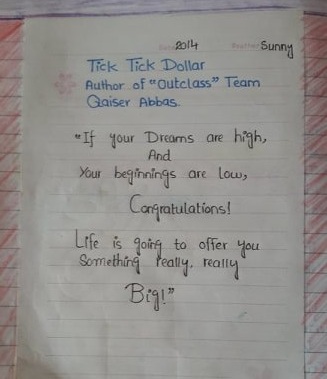 2014 Sunny
Tick Tick Dollar
Author of "Outclass" Team
Qaiser Abbas.
"If your Dreams are high,
And
Your beginnings are low,
Congratulations!
Life is going to offer you
Something really, really
Big!"